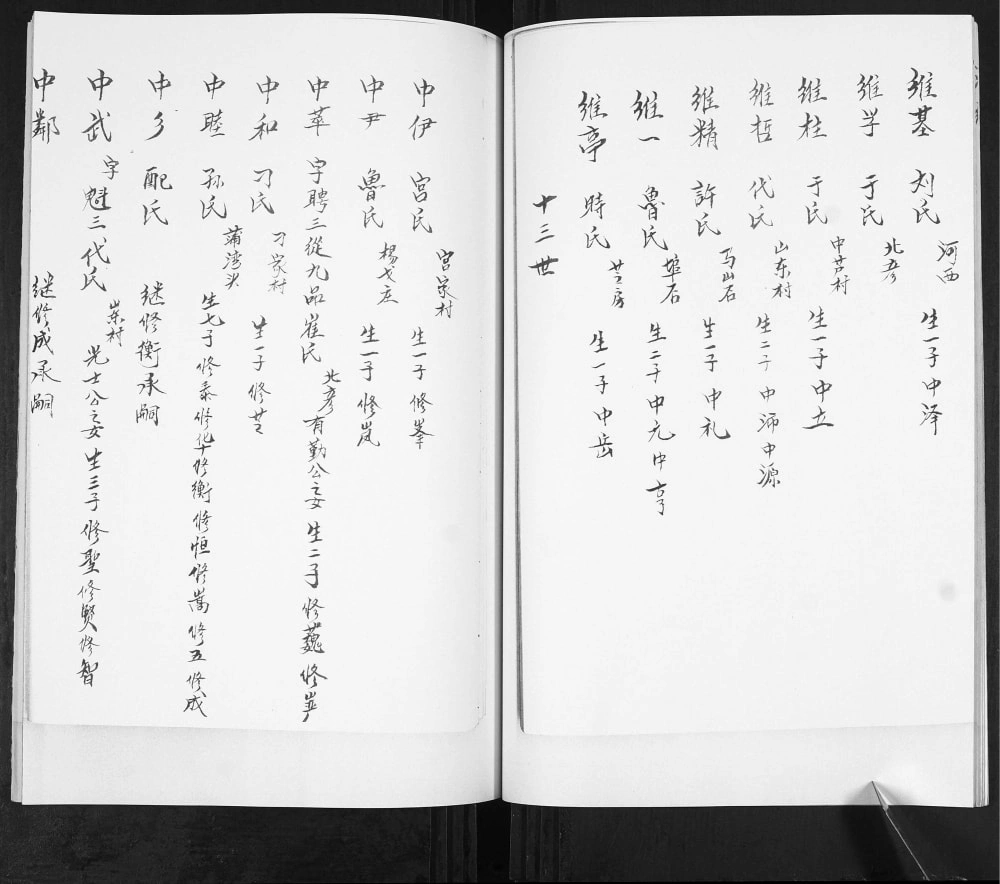 维基 刘氏 河西 生一子中泽
维学 于氏 北彦 
维柱 于氏 中芦村 生一子中立
维哲 代氏 山东村 生二子中沛中源
维精 許氏 马山石 生一子中礼
维一 魯氏 埠后 生二子中元中亨
维亭 時氏 芝房 生一子中岳
十三世
中伊 宫氏 宫家村 生一子修峯
中尹 魯氏 楊戈庄 生一子修嵐
中莘 字聘三從九品崔氏 北彦 有勤公之女生二子修巍修峷
中和 刁氏 刁家村 生一子修芝
中睦 孙氏 蒲湾头 生七子修泰修华修衡修恒修嵩修五修成
中乡 配氏 继修衡承嗣
中武 字魁三代氏 山东村 光士公之女生三子修聖修贤修智
中鄰 继修成承嗣